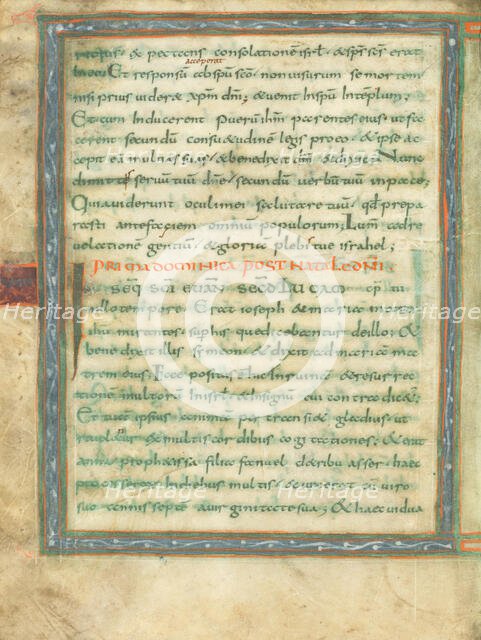 & expectens consolationē isrl & sp̄s sc̄s erat
acceperat
In eo Et responsū ab sp̄u sc̄o non visurum se mortem
nisi prius videret xp̄m dn̄i & venit In sp̄u In templum
Et cum Inducerent puerū ihm̄ parentes eius ut fa
cerent secundū consu&udinē legis pro eo & ipse ac
cepit eū In ulnas suas & benedixit dn̄m & dixit Nunc
dimittis servū tuū dn̄e secundū verbū tuū In pace
Quia viderunt oculi mei salutare tuū qd̄ prepa
rasti ante faciem omniū populorum Lum ad re
velationē gentiū & gloria plebis tue israhel
PRIMA DOMINICA POST NATALE DN̄I
SEQ SC̄I EVAN SECD̄ LUCAM
Illo tempore Erat ioseph & maria mat
ihu mirantes sup his que dicebantur de illo &
bened ixit illis symeon & dixit ad mariā ma
trem eius Ecce positus ē hic In ruinā & resurrec
tionē multorū In isrl & In signū cui contradic&
Et tuā ipsius animā pertransi& gladius ut
revelentur ex multis cordibus cogitationes & erat
anna proph&issa filia fanuel de tribu aser haec
processerat In diebus multis & vixerat cū viro
suo annis septē a virginitate sua & haec vidua
Heritage
Heritage
Heritage
Heritage
Heritage
Heritage
C